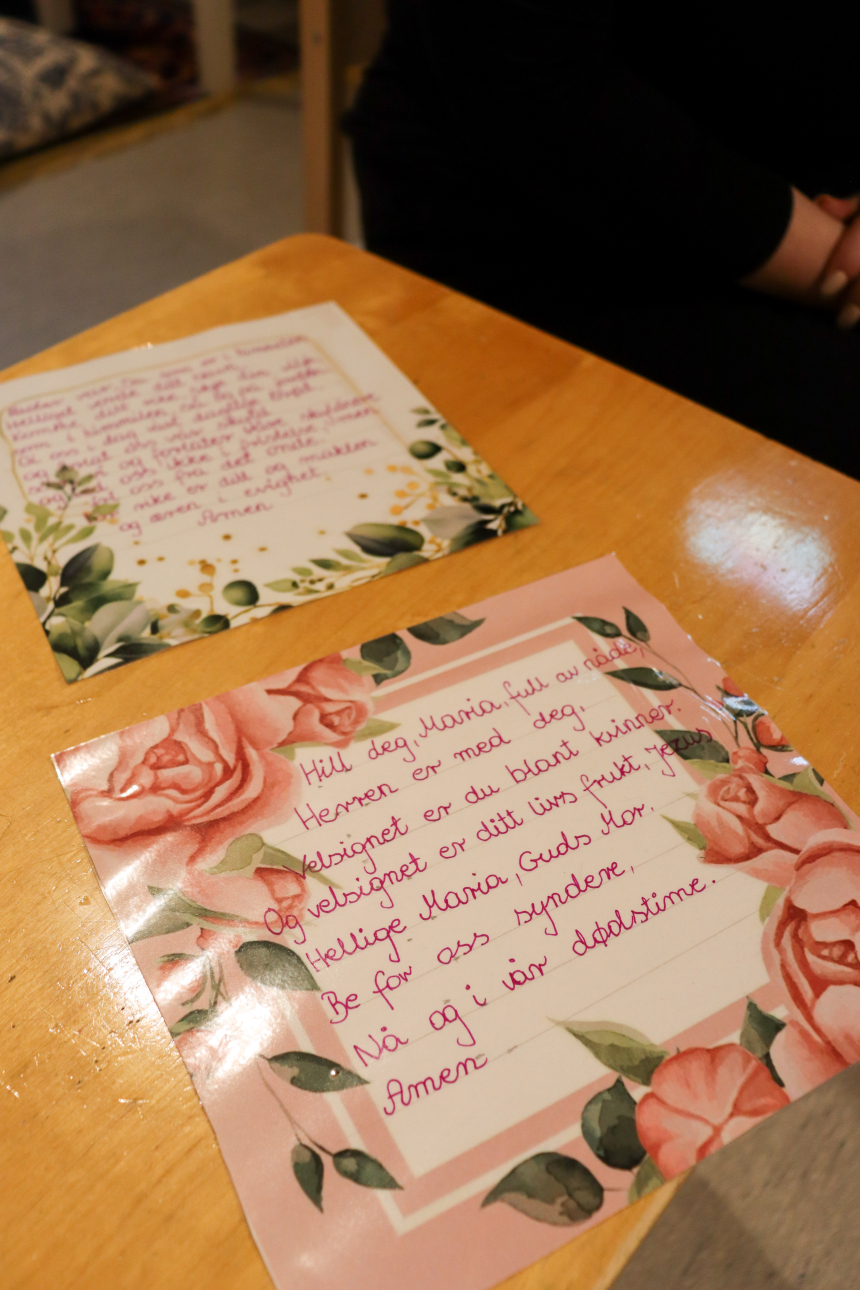 som i himmelen så og på jorden
Gi oss i dag vårt daglige brød
og forlat oss vår skyld
som vi og forlater våre skyldnere
og led oss ikke i fristelse, men
fri oss fra det onde.
riket er ditt og makten
og æren i evighet.
Amen
Hill deg, Maria, full av nåde,
Herren er med deg,
Velsignet er du blant kvinner.
Og velsignet er ditt livs frukt, Jesus
Hellige Maria, Guds Mor.
Be for oss syndere,
Nå og i vår dødstime.
Amen